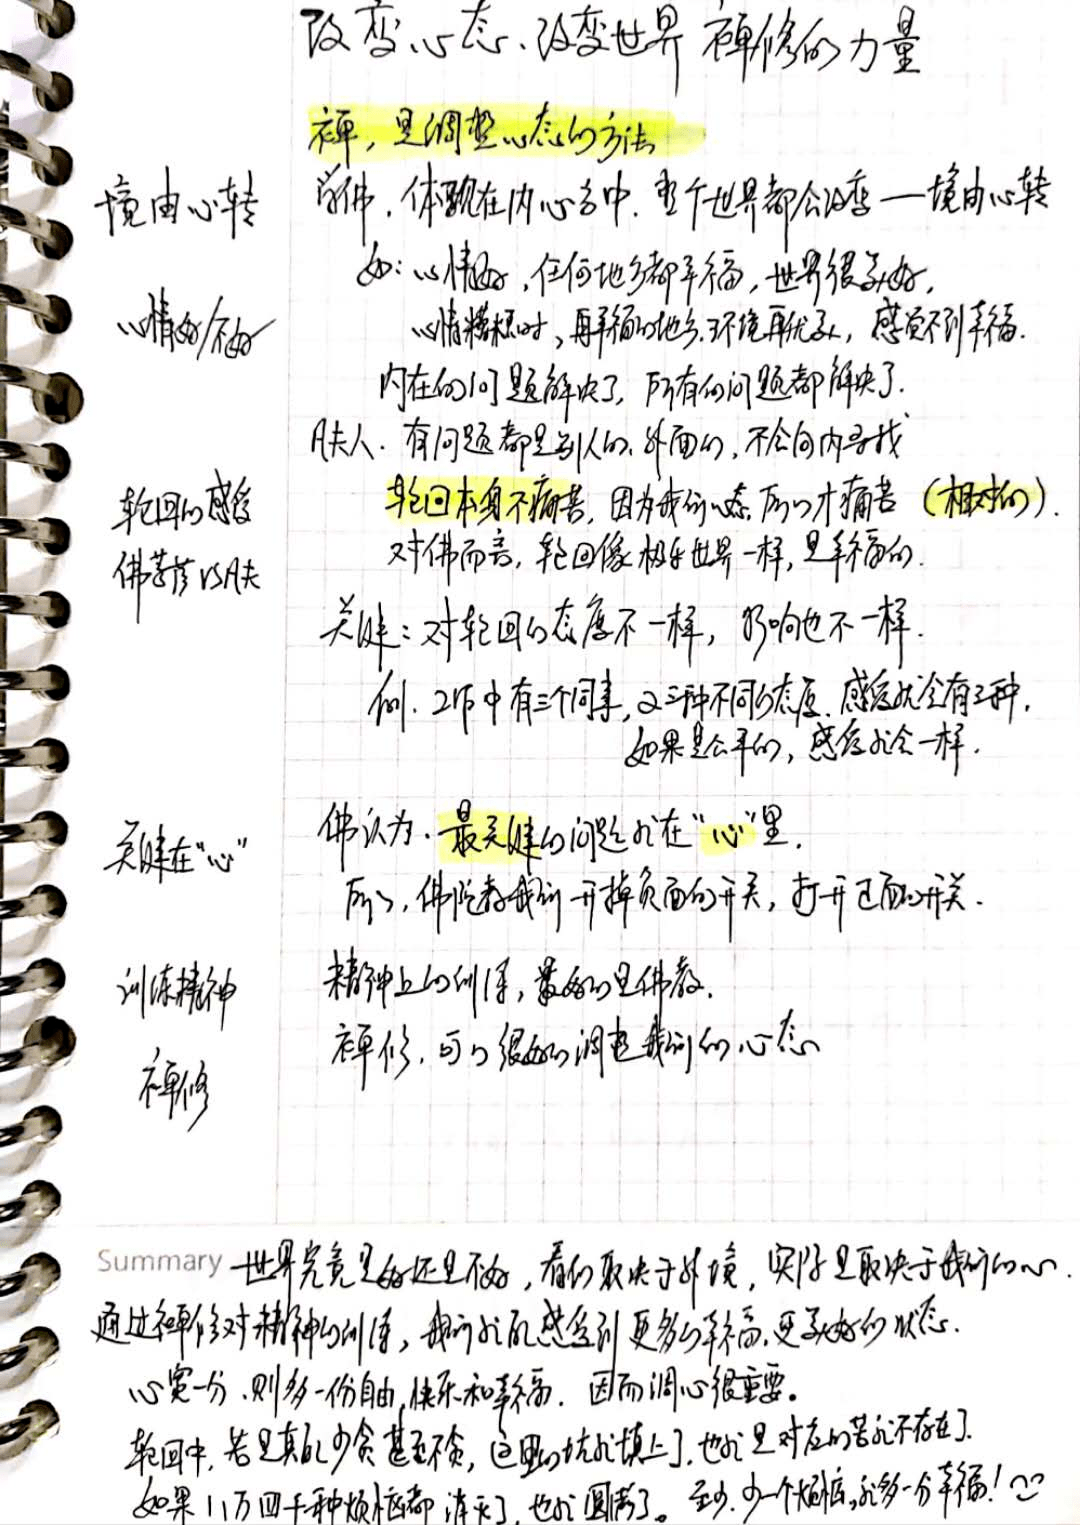 改变心态、改变世界 禅修的力量
禅，是调整心态的方法
境由心转
学佛，体现在内心当中，整个世界都会改变——境由心转
如：心情好，任何地方都幸福，世界很美好，
心情好/不好
心情糟糕时，再幸福的地方、环境再优美，感觉不到幸福．
内在的问题解决了，所有的问题都解决了．
凡夫人．有问题都是别人的、外面的，不会向内寻找
轮回的感受
轮回本身不痛苦，因为我们心态，所以才痛苦（相对的）．
佛菩萨 VS 凡夫
对佛而言，轮回像极乐世界一样，是幸福的．
关键：对轮回的态度不一样，影响也不一样．
例．工作中有三个同事，又三种不同的态度．感受就会有三种，
如果是公平的，感受就会一样．
关键在“心”
佛认为．最关键的问题就在“心”里．
所以，佛陀教我们 开掉负面的开关，打开正面的开关．
训练精神
精神上的训练，最好的是佛教．
禅修
禅修，可以很好的调整我们的心态
Summary 世界究竟是好还是不好，看似取决于外境，实际是取决于我们的心．
通过禅修对精神的训练，我们就能感受到更多的幸福、更美好的状态．
心宽一分，则多一份自由、快乐和幸福．因而调心很重要。
轮回中，若是真能少贪甚至不贪，这里的坑就填上了，也就是对应的苦就不存在了．
如果八万四千种烦恼都消灭了，也就圆满了。至少，少一个烦恼，就多一分幸福！